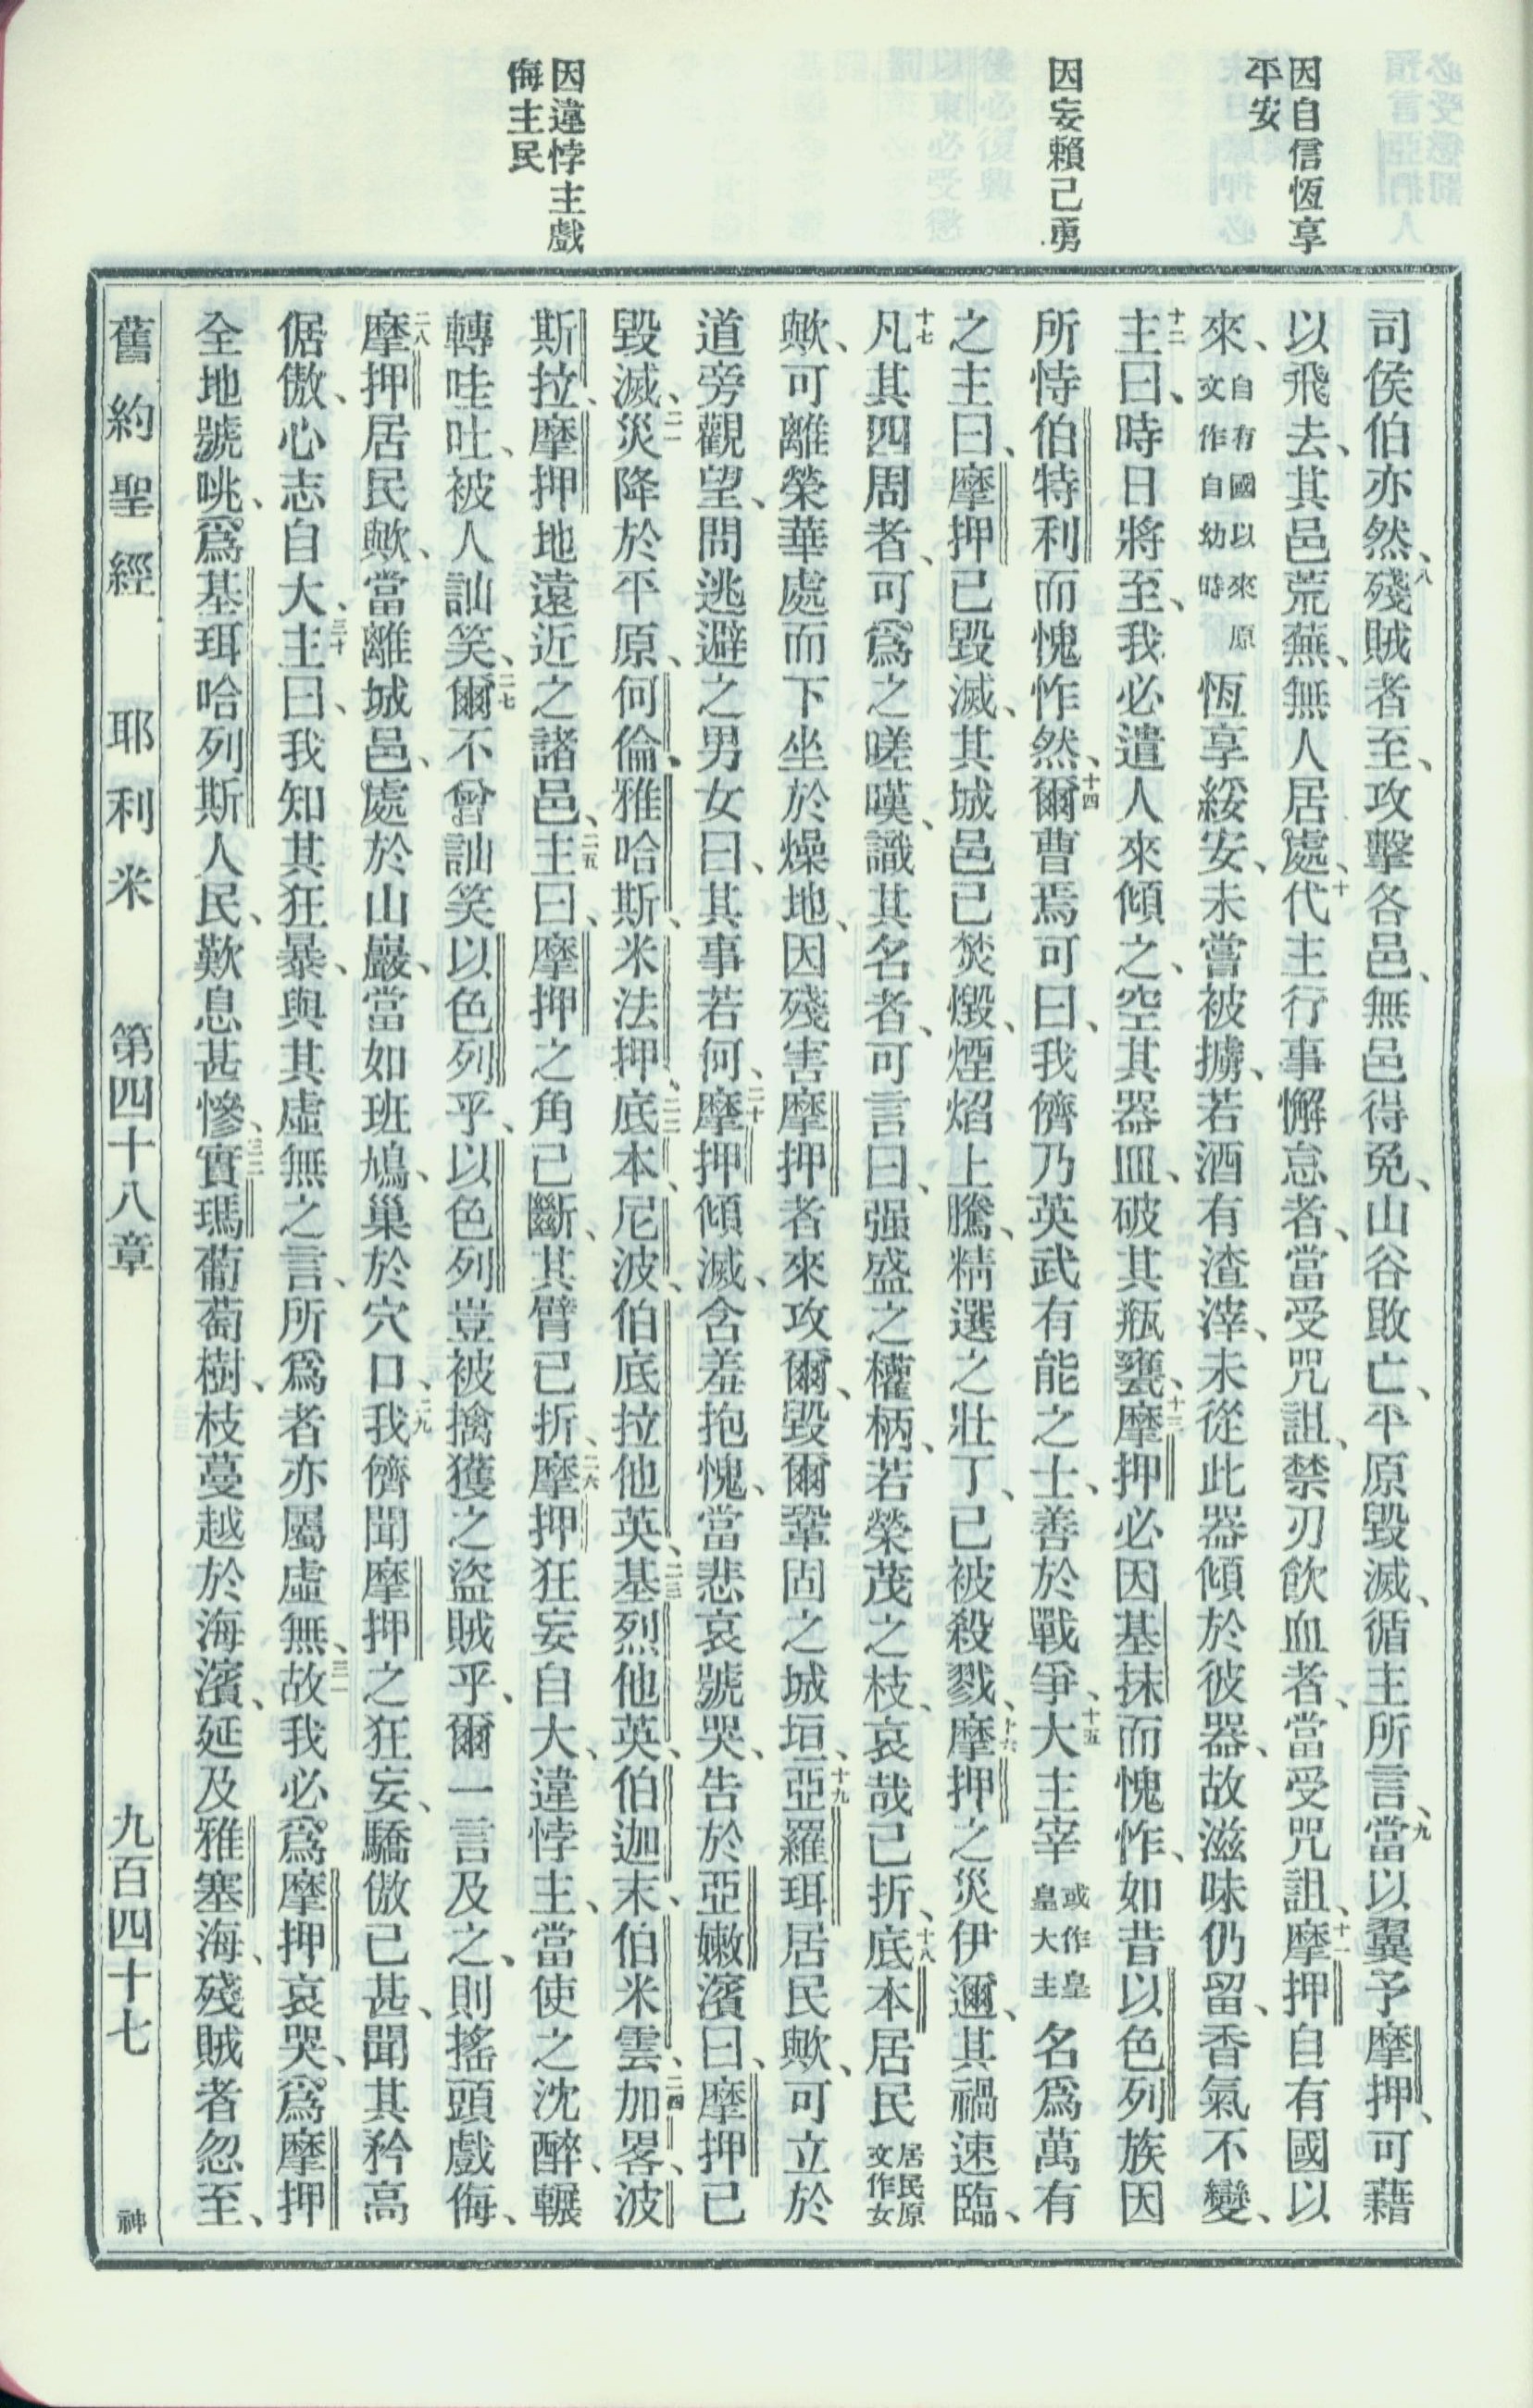 因自信恆享
平安
因妄賴己勇
因違悖主戲
侮主民
司侯伯亦然、八殘賊者至、攻擊各邑、無邑得免、山谷敗亡、平原毀滅、循主所言、九當以翼予摩押、可藉
以飛去、其邑荒蕪、無人居處、十代主行事懈怠者、當受咒詛、禁刃飲血者、當受咒詛、十一摩押自有國以
來、自有國以來原文作自幼時恆享綏安、未嘗被擄、若酒有渣滓、未從此器傾於彼器、故滋味仍留、香氣不變、
十二主曰、時日將至、我必遣人來傾之、空其器皿、破其瓶甕、十三摩押必因基抹而愧怍、如昔以色列族因
所恃伯特利而愧怍然、十四爾曹焉可曰、我儕乃英武有能之士、善於戰爭、十五大主宰或作皇皇大主名爲萬有
之主曰、摩押已毀滅、其城邑已焚燬、煙焰上騰、精選之壯丁、已被殺戮、十六摩押之災伊邇、其禍速臨、
十七凡其四周者、可爲之嗟嘆、識其名者、可言曰、强盛之權柄、若榮茂之枝、哀哉已折、十八底本居民居民原文作女
歟、可離榮華處而下坐於燥地、因殘害摩押者來攻爾、毀爾鞏固之城垣、十九亞羅珥居民歟、可立於
道旁觀望、問逃避之男女曰、其事若何、二十摩押傾滅、含羞抱愧、當悲哀號哭、告於亞嫩濱曰、摩押已
毀滅、二一災降於平原、何倫、雅哈斯、米法押、二二底本、尼波、伯底拉他英、二三基烈他英、伯迦末、伯米雲、二四加畧、波
斯拉、摩押地遠近之諸邑、二五主曰、摩押之角已斷、其臂已折、二六摩押狂妄自大、違悖主、當使之沈醉、輾
轉哇吐、被人訕笑、二七爾不曾訕笑以色列乎、以色列豈被擒獲之盜賊乎、爾一言及之、則搖頭戲侮、
二八摩押居民歟、當離城邑、處於山巖、當如班鳩、巢於穴口、二九我儕聞摩押之狂妄、驕傲已甚、聞其矜高
倨傲、心志自大、三十主曰、我知其狂暴、與其虛無之言、所爲者亦屬虛無、三一故我必爲摩押哀哭、爲摩押
全地號咷、爲基珥哈列斯人民、歎息甚慘、三二實瑪葡萄樹、枝蔓越於海濱、延及雅塞海、殘賊者忽至、
舊約聖經 耶利米 第四十八章 九百四十七 神